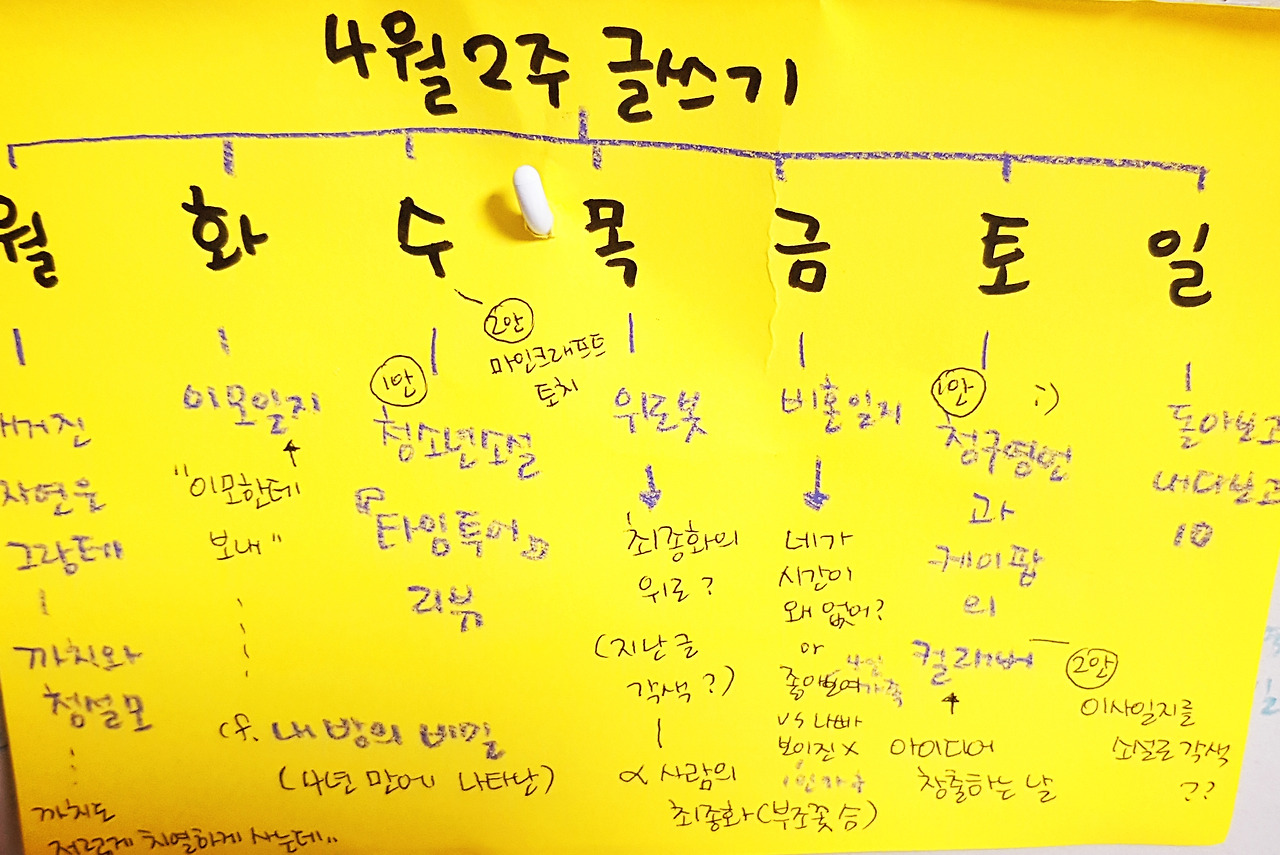 4월 2주 글쓰기
월 화 수 목 금 토 일
매거진
자연은
그랑데
까치와
청설모
까치도
저렇게 치열하게 사는데..
이모일지
"이모한테
보내"
1안
청소년소설
『타임투어』
리뷰
2안
마인크래프트
토치
cf. 내 방의 비밀
(4년 만에 나타난)
위로봇
최종화의
위로?
(지난 글
각색?)
α 사람의
최종화(부조꽃 승)
비혼일지
네가
시간이
왜 없어?
or
좋아보여
vs 나빠
보이진 x
4인
가족
1인가구
1안
:)
청구영언
과
케이팝
의
컬래버
아이디어
창출하는 날
2안
이사일지를
소설로 각색
??
돌아보고
내다보고
10